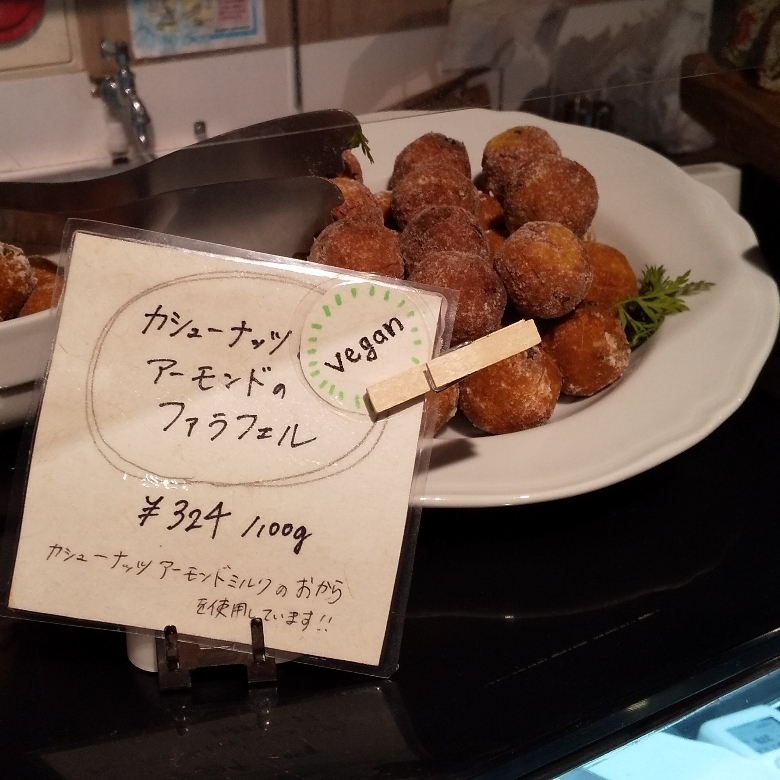 カシューナッツ
アーモンドの
ファラフェル
vegan
¥324 /100g
カシューナッツ アーモンドミルクの おから
を使用しています!!